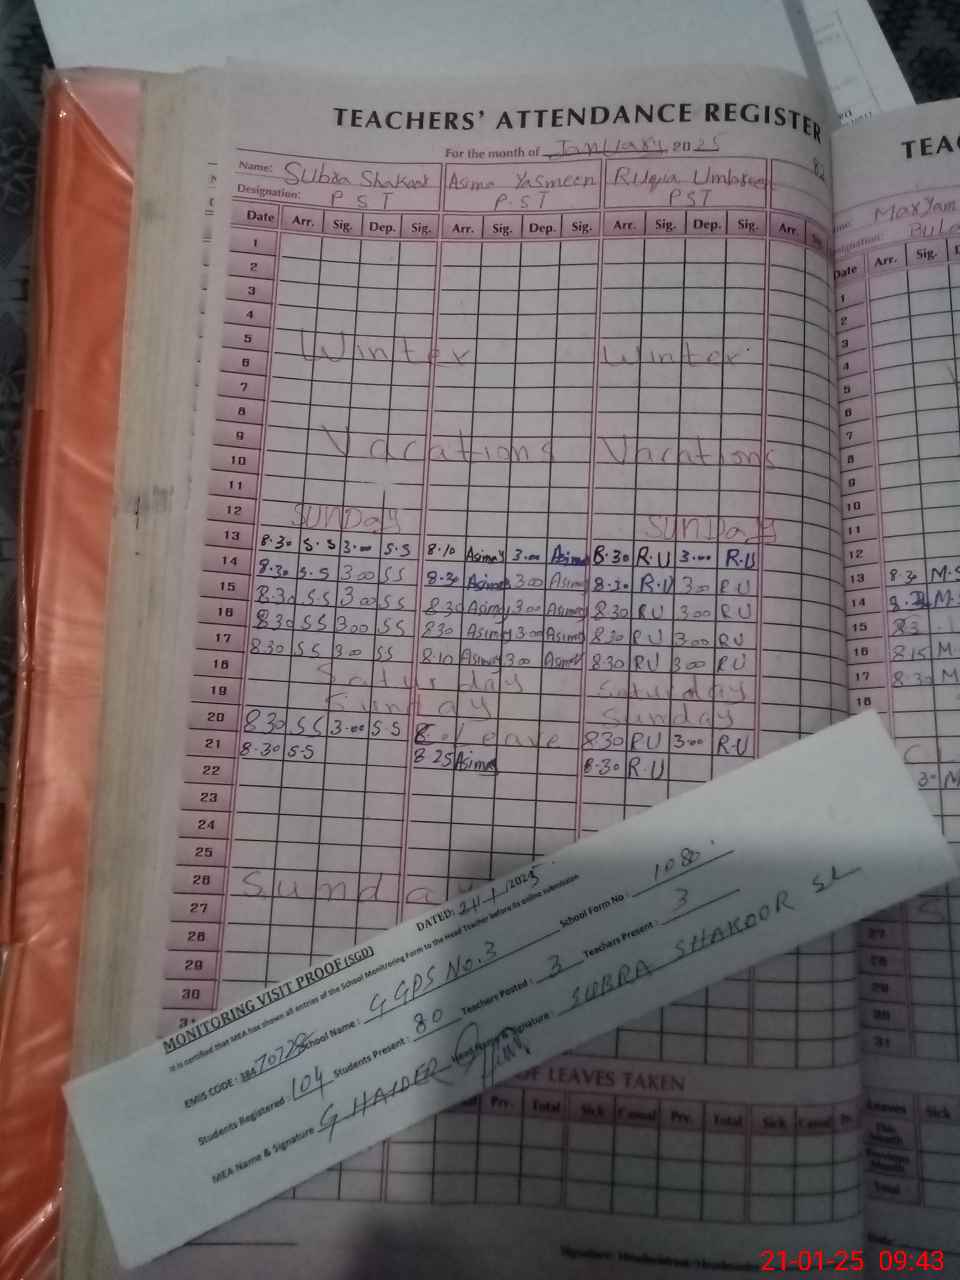 TEACHERS' ATTENDANCE REGISTER
For the month of January 2025
Name: Subra Shakoor Asima Yasmeen Ruqia Umbreen
Designation: PST P.ST PST
Date Arr. Sig. Dep. Sig. Arr. Sig. Dep. Sig. Arr. Sig. Dep. Sig. Arr.
1
2
3
4
5
6 Winter Winter
7
8
9
10 Vacations Vacations
11
12 SUNDay SUNDay
13 8.30 S.S 3.00 S.S 8.10 Asima 3.00 Asima 8.30 R.U 3.00 R.U
14 8.30 S.S 3.00 SS 8.30 Asima 3.00 Asima 8.30 R.U 3.00 R.U
15 8.30 SS 3.00 SS 8.30 Asima 3.00 Asima 8.30 RU 3.00 RU
16 8.30 SS 3.00 SS 8.30 Asima 3.00 Asima 8.30 RU 3.00 RU
17 8.30 SS 3.00 SS 8.10 Asima 3.00 Asima 8.30 RU 3.00 RU
18 Saturday Saturday
19 Sunday Sunday
20 8.30 SS 3.00 S.S Leave 8.30 RU 3.00 R.U
21 8.30 S.S 8.25 Asima 8.30 R.U
22
23
24
25
26 Sunday
27
28
29
30
31
MONITORING VISIT PROOF (SGD) DATED: 21/1/2025
It is certified that MEA has shown all entries of the School Monitoring Form to the Head Teacher before its online submission
EMIS CODE: 38470728 School Name: GGPS No.3 School Form No: 1080
Students Registered: 104 Students Present: 80 Teachers Posted: 3 Teachers Present: 3
MEA Name & Signature G HAIDER Signature: SUBRA SHAKOOR
OF LEAVES TAKEN
Prv. Total Sick Casual Prv. Total Sick Casual Prv.
TEA
Maryam
Date Arr. Sig.
1
2
3
4
5
6
7
8
9
10
11
12
13 8.30 M.S
14
15
16 8.15 M.
17 8.30 M
18
28
29
30
31
Leaves Sick
This Month
Previous Month
Total
21-01-25 09:43